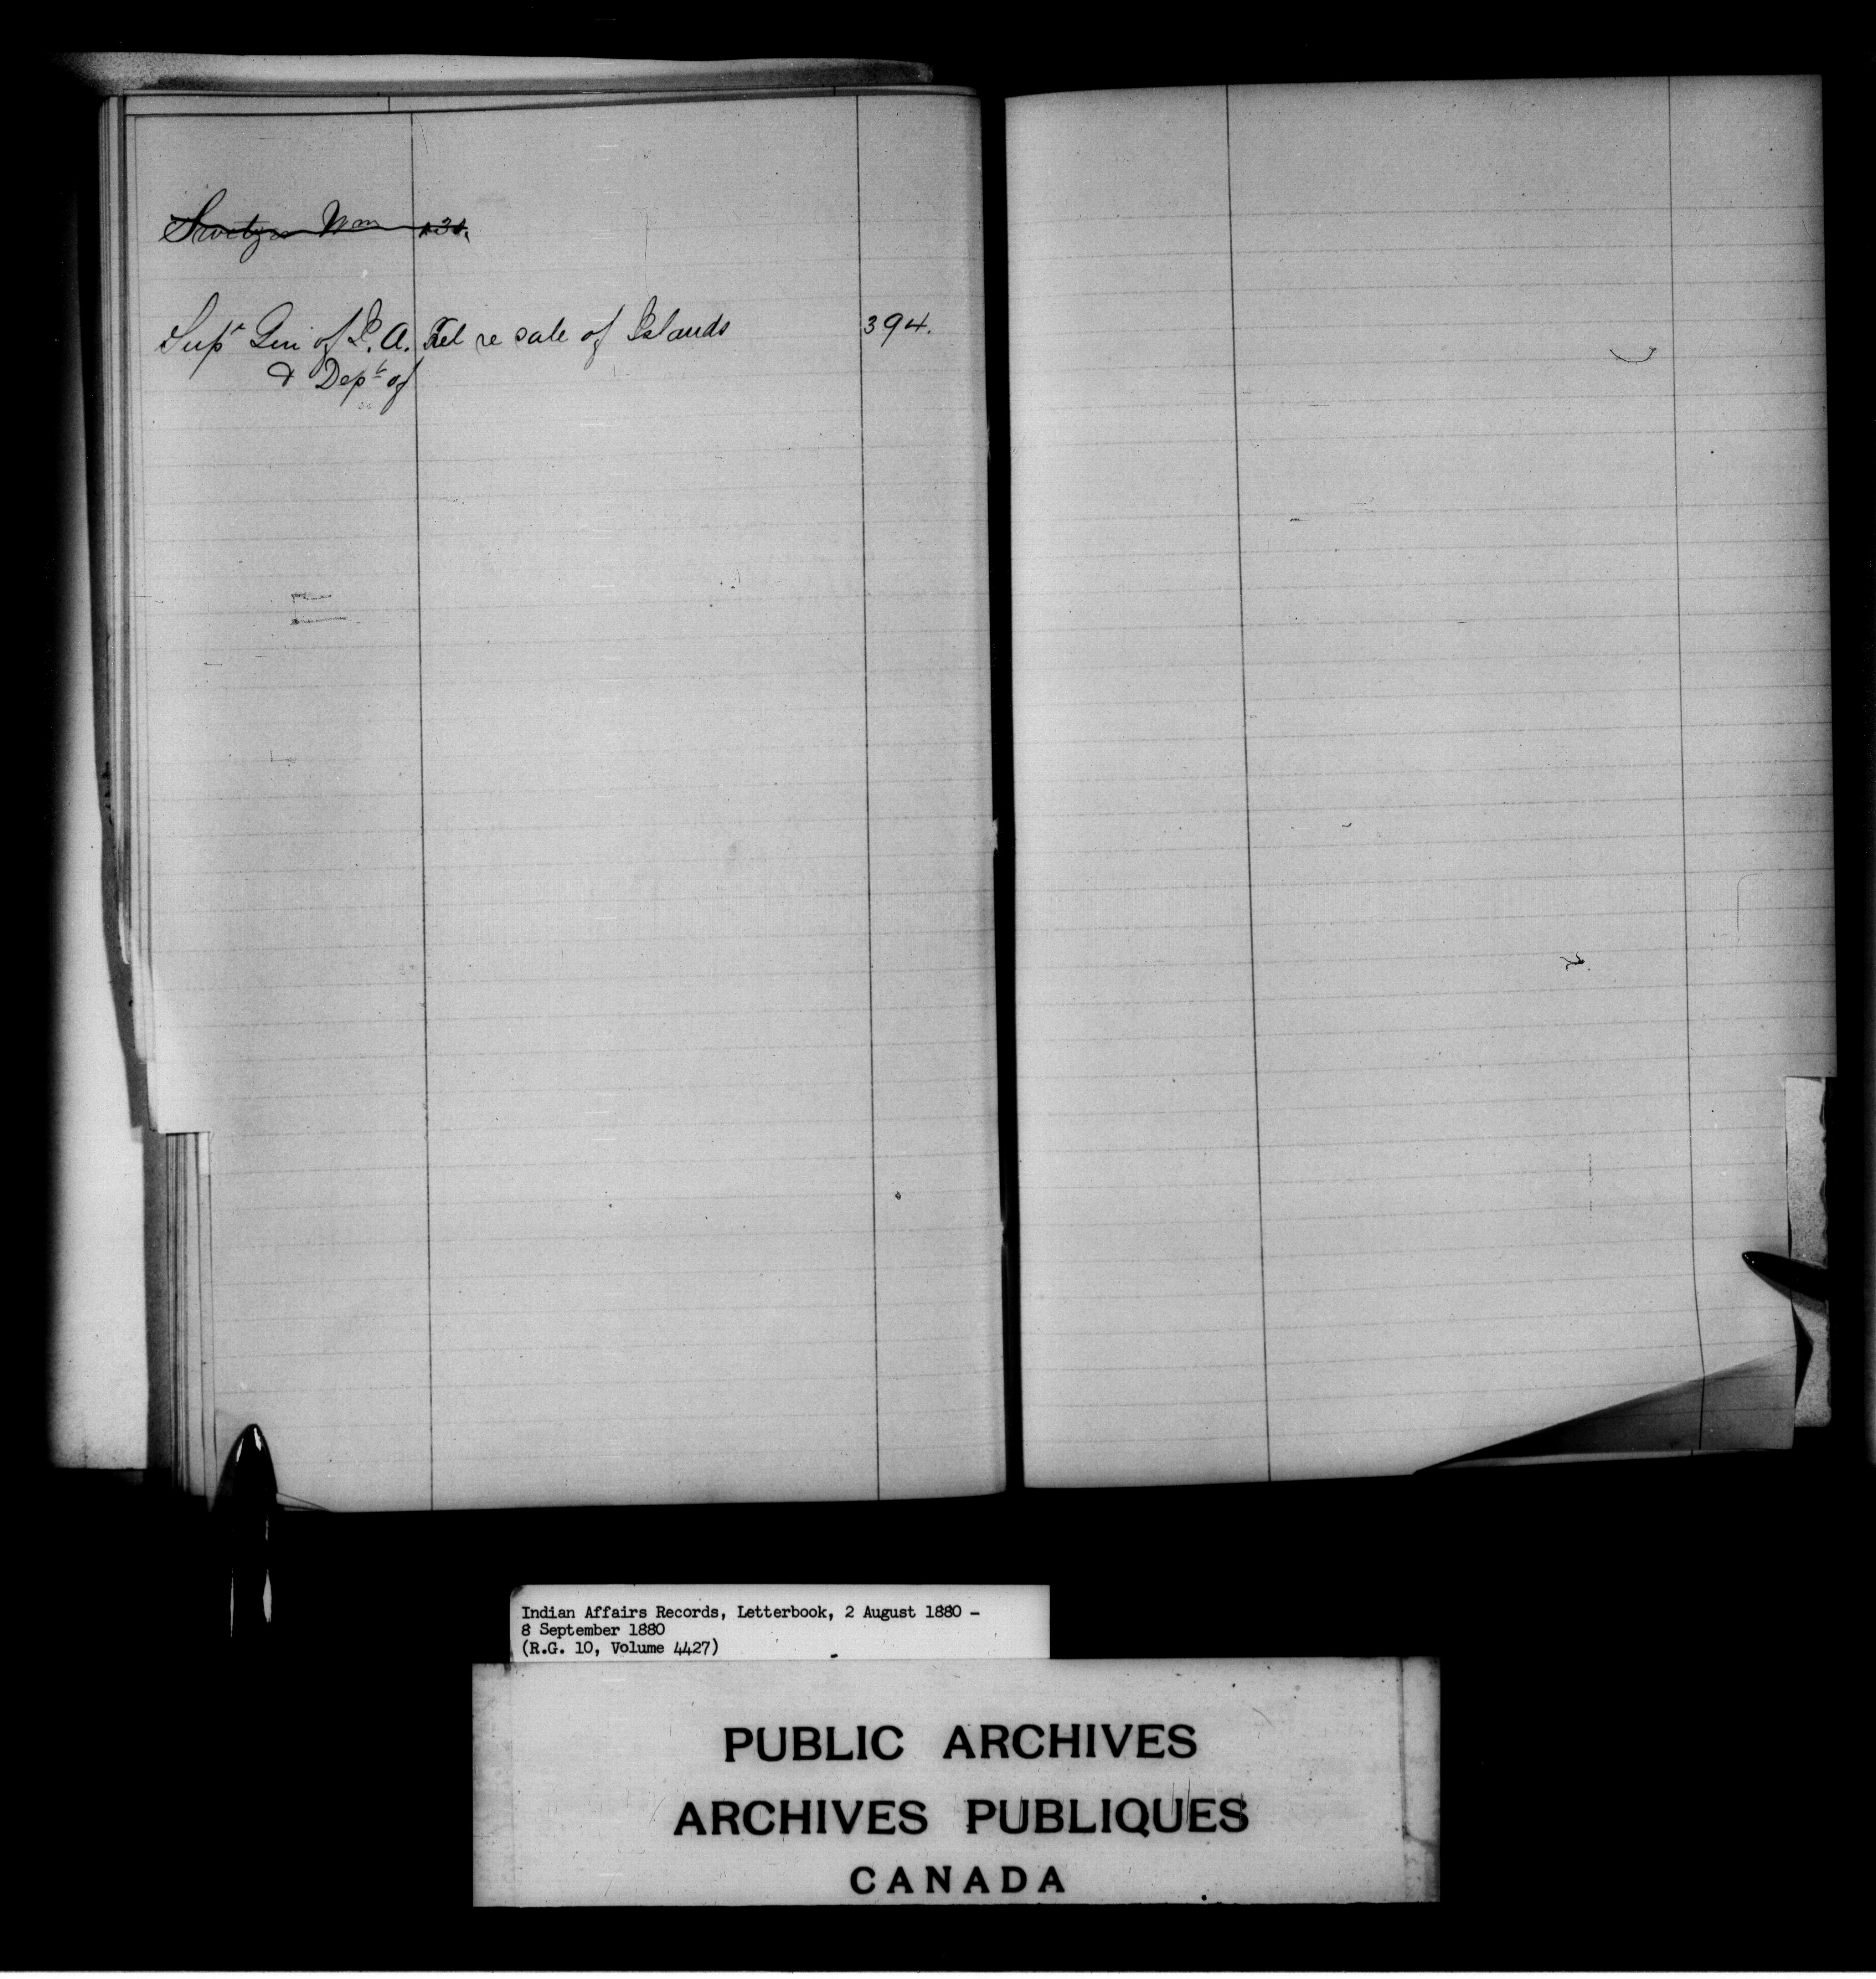 Wm
Supt Gen of I. A. Tel re sale of Islands 394.
& Dept of
Indian Affairs Records, Letterbook, 2 August 1880 -
8 September 1880
(R.G. 10, Volume 4427)
PUBLIC ARCHIVES
ARCHIVES PUBLIQUES
CANADA